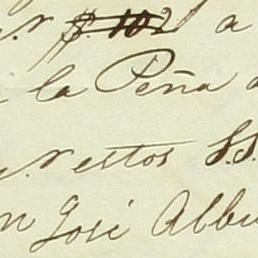 $. 102 a
la Peña
restos S.S.
José Albu